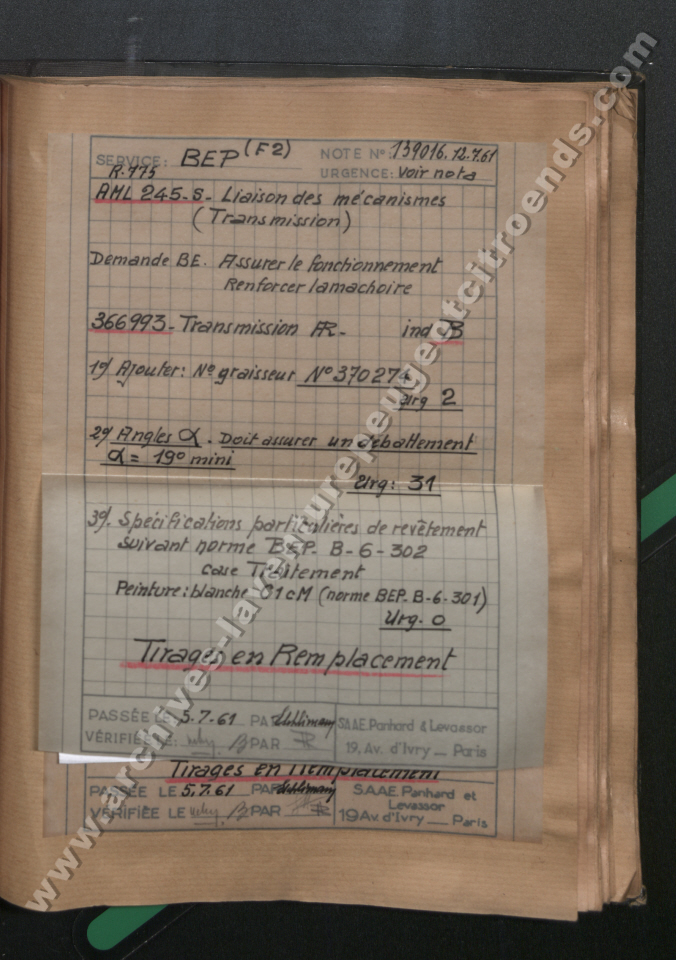 SERVICE: BEP (F2) NOTE N°: 139016. 12.7.61
R.775 URGENCE: Voir nota
AML 245.S - Liaison des mécanismes
(Transmission)
Demande BE. Assurer le fonctionnement
Renforcer la machoire
366993 - Transmission AR - ind B
1°/ Ajouter: N° graisseur N° 370274
Urg 2
2°/ Angles α. Doit assurer un débattement
α = 19° mini
Urg: 31
3°/. Spécifications particulières de revêtement
suivant norme BEP. B-6-302
case Traitement
Peinture: blanche 01cM (norme BEP. B-6-301)
Urg. 0
Tirages en Remplacement
PASSÉE LE 5.7.61 PAR S.A.A.E. Panhard & Levassor
VÉRIFIÉE LE PAR 19, Av. d'Ivry — Paris
Tirages en Remplacement
PASSÉE LE 5.7.61 PAR S.A.A.E. Panhard et
Levassor
VÉRIFIÉE LE PAR 19 Av. d'Ivry — Paris
www.archives-laventurepeugeotcitroends.com